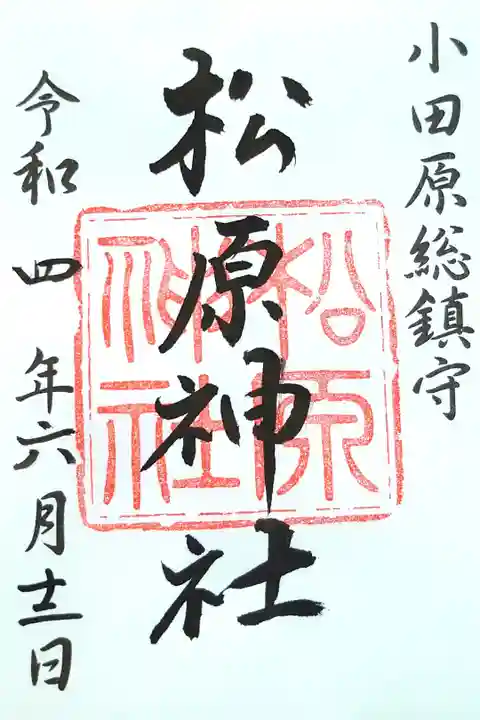 小田原総鎮守
松原神社
令和四年六月十二日
松原
神社